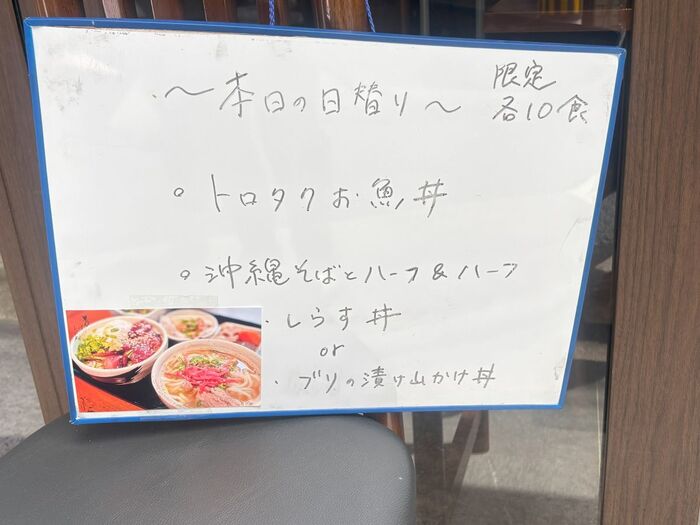 ～本日の日替り～
限定
各10食
○トロタクお魚丼
○沖縄そばとハーフ&ハーフ
・しらす丼
or
・ブリの漬け山かけ丼